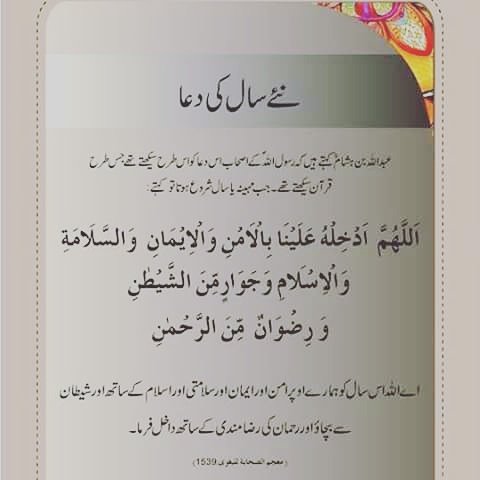 نئے سال کی دعا
عبداللہ بن ہشامؓ کہتے ہیں کہ رسول اللہؐ کے اصحاب اس دعا کو اس طرح سیکھتے تھے جس طرح
قرآن سیکھتے تھے۔ جب مہینہ یا سال شروع ہوتا تو کہتے:
اَللّٰهُمَّ اَدْخِلْهُ عَلَيْنَا بِالْاَمْنِ وَالْاِيْمَانِ وَالسَّلَامَةِ
وَالْاِسْلَامِ وَجَوَارٍ مِّنَ الشَّيْطٰنِ
وَ رِضْوَانٌ مِّنَ الرَّحْمٰنِ
اے اللہ اس سال کو ہمارے اوپر امن اور ایمان اور سلامتی اور اسلام کے ساتھ اور شیطان
سے بچاؤ اور رحمان کی رضا مندی کے ساتھ داخل فرما۔
(معجم الصحابة للبغوی 1539)